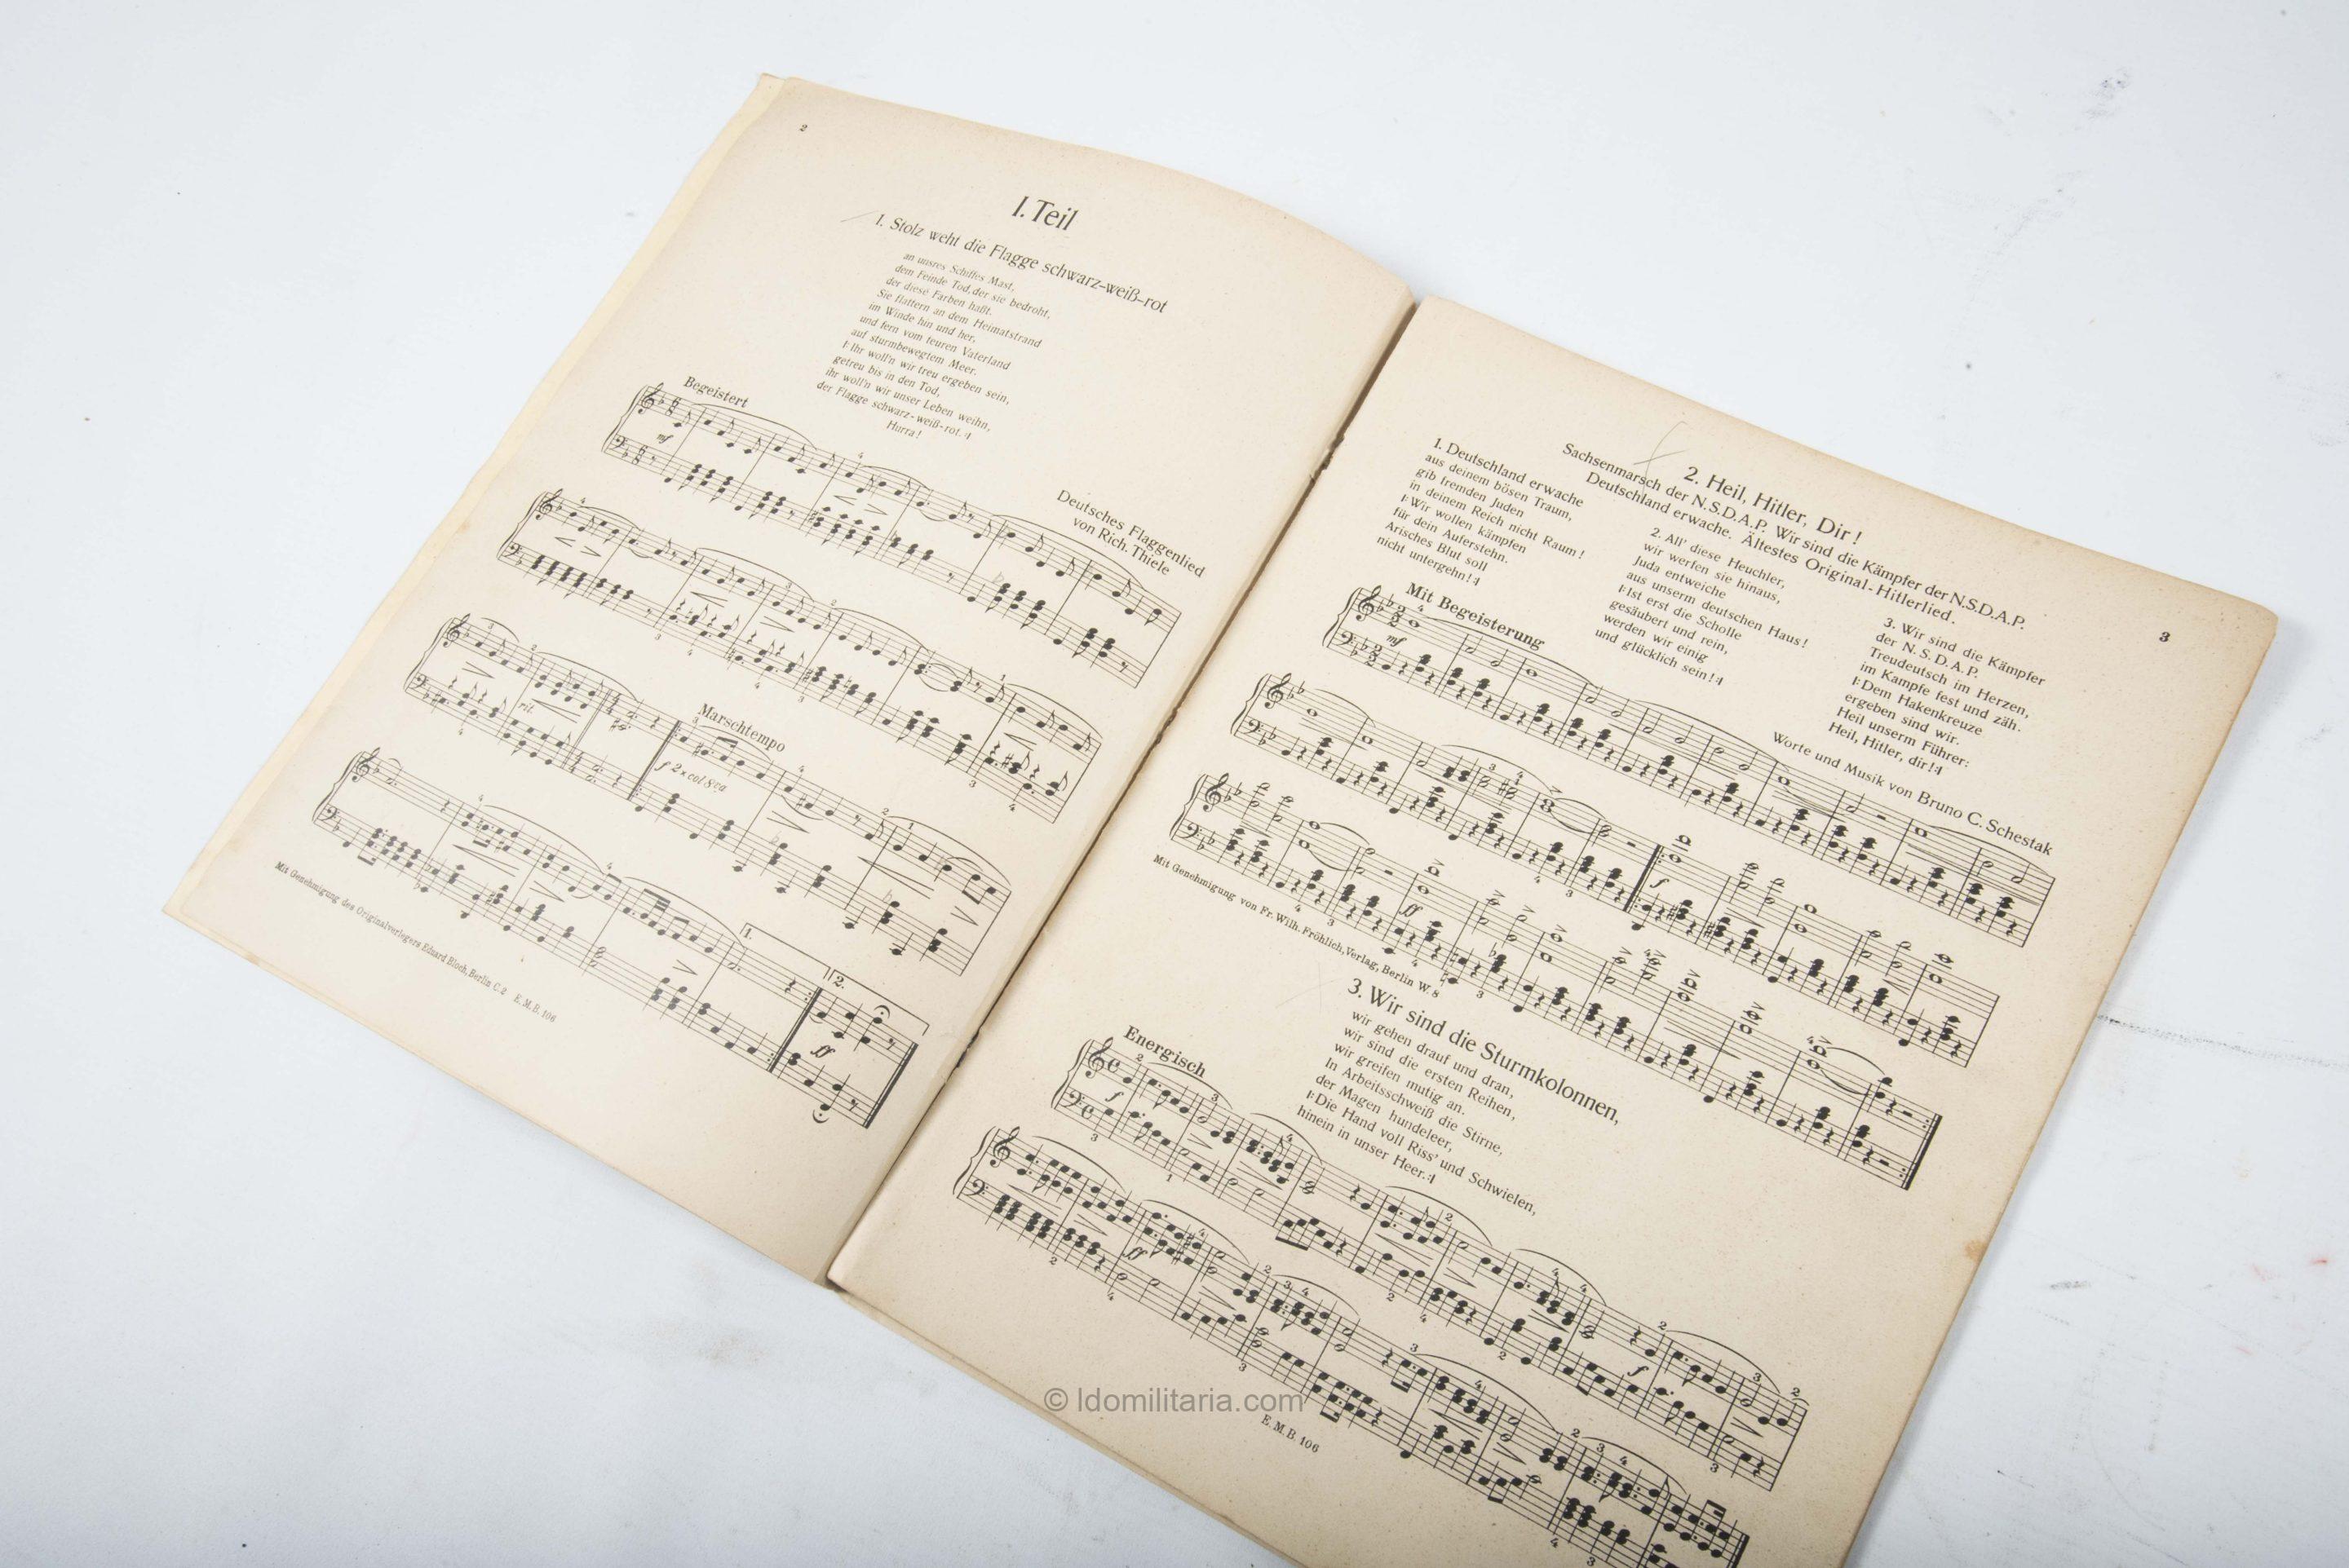 2
I. Teil
1. Stolz weht die Flagge schwarz-weiß-rot
an unsres Schiffes Mast,
dem Feinde Tod, der sie bedroht,
der diese Farben haßt.
Sie flattern an dem Heimatstrand
im Winde hin und her,
und fern vom teuren Vaterland
auf sturmbewegtem Meer.
|: Ihr woll'n wir treu ergeben sein,
getreu bis in den Tod,
ihr woll'n wir unser Leben weihn,
der Flagge schwarz-weiß-rot. :|
Hurra!
Deutsches Flaggenlied
von Rich. Thiele
Begeistert
mf
rit.
Marschtempo
f 2x col 8va
1.
2.
ff
Mit Genehmigung des Originalverlegers Eduard Bloch, Berlin C.2 E.M.B. 106
3
2. Heil, Hitler, Dir!
Sachsenmarsch der N.S.D.A.P. Wir sind die Kämpfer der N.S.D.A.P.
Deutschland erwache. Ältestes Original-Hitlerlied.
1. Deutschland erwache
aus deinem bösen Traum,
gib fremden Juden
in deinem Reich nicht Raum!
|: Wir wollen kämpfen
für dein Auferstehn.
Arisches Blut soll
nicht untergehn! :|
2. All' diese Heuchler,
wir werfen sie hinaus,
Juda entweiche
aus unserm deutschen Haus!
|: Ist erst die Scholle
gesäubert und rein,
werden wir einig
und glücklich sein! :|
3. Wir sind die Kämpfer
der N.S.D.A.P.
Treudeutsch im Herzen,
im Kampfe fest und zäh.
|: Dem Hakenkreuze
ergeben sind wir.
Heil unserm Führer:
Heil, Hitler, dir! :|
Worte und Musik von Bruno C. Schestak
Mit Begeisterung
mf
f
ff
Mit Genehmigung von Fr. Wilh. Fröhlich, Verlag, Berlin W 8
3. Wir sind die Sturmkolonnen,
wir gehen drauf und dran,
wir sind die ersten Reihen,
wir greifen mutig an.
In Arbeitsschweiß die Stirne,
der Magen hundeleer,
|: Die Hand voll Riss' und Schwielen,
hinein in unser Heer. :|
Energisch
f
f
ff
E.M.B. 106
© ldomilitaria.com